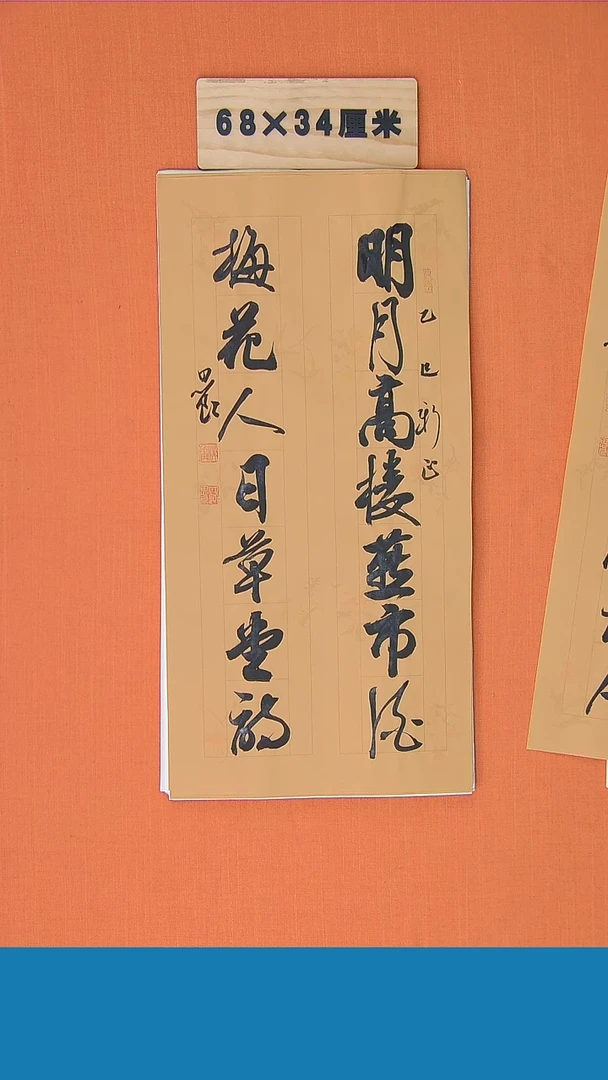 68×34厘米
明月高楼燕市酒
乙巳新正
梅花人日草堂诗